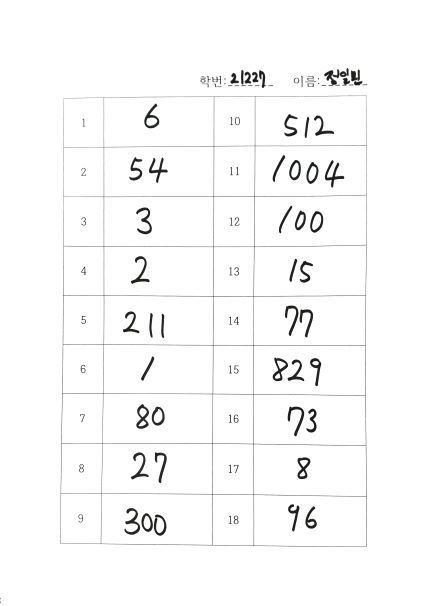 학번: 21227 이름: 정일민
1 6 10 512
2 54 11 1004
3 3 12 100
4 2 13 15
5 211 14 77
6 1 15 829
7 80 16 73
8 27 17 8
9 300 18 96